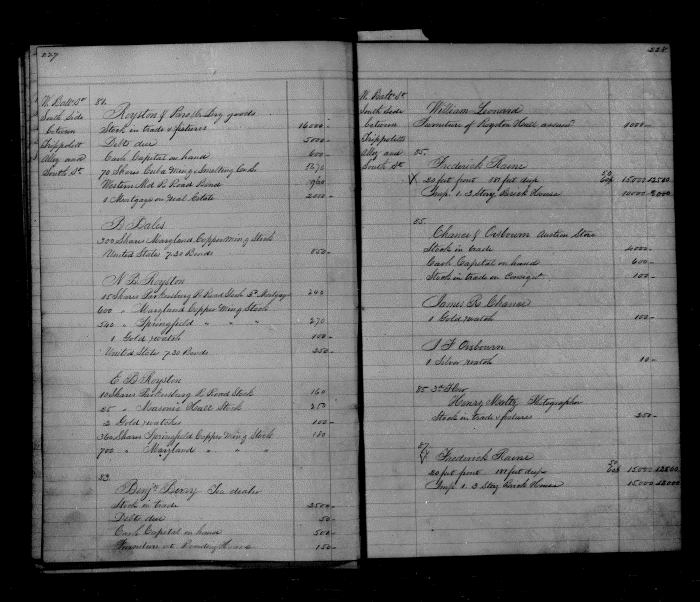 227
W. Balto St
South Side
between
Trippolett
Alley and
South St
81.
Royston & Dry goods
Stock in trade & fixtures 16000-
Debts due 5000-
Cash Capital on hand 600-
70 Shares Cuba Ming & Smelting Co St.
Western Md R Road Bond
1 Mortgage on Real Estate 2000-
B. Dales
300 Shares Maryland Copper Ming Stock
United States 7.30 Bonds 850-
N B. Royston
15 Shares Parkersburg R Road Stock 3d Mortgage
600 " Maryland Copper Ming Stock
540 " Springfield " " " 270
1 Gold watch 100-
United States 7.30 Bonds 250-
E B Royston
10 Shares Parkersburg R Road Stock 160
25 " Masonic Hall Stock 250
2 Gold watches 100-
360 Shares Springfield Copper Ming Stock 180
702 " Maryland " " "
83.
Benjn Berry Tea dealer
Stock in trade 2500-
Debts due 50-
Cash Capital on hand 500-
Furniture at Boarding House 150-
228
W. Balto St
South Side
between
Trippolett
Alley and
South St
William Leonard
Furniture of Royston Hall 1000-
85.
Frederick Raine
V 20 feet front 181 feet deep 15000 12500
Imp. 1. 3 Story Brick House 10000
85.
Chancey & Osbourn Auction Store
Stock in trade 4000-
Cash Capital on hand 600-
Stock in trade on Consignt 100-
James R. Chancey
1 Gold watch 100-
J F Osbourn
1 Silver watch 10-
85 3d Floor
Henry Photographer
Stock in trade & fixtures 250-
87.
V Frederick Raine
20 feet front 181 feet deep 15000 12500
Imp. 1. 3 Story Brick House 15000 12000